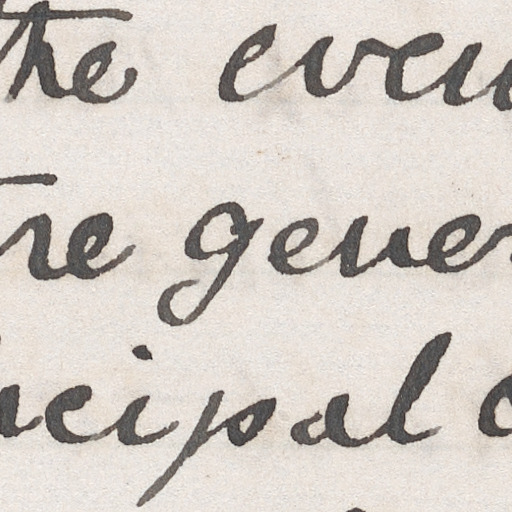 the even
the gener
ncipal